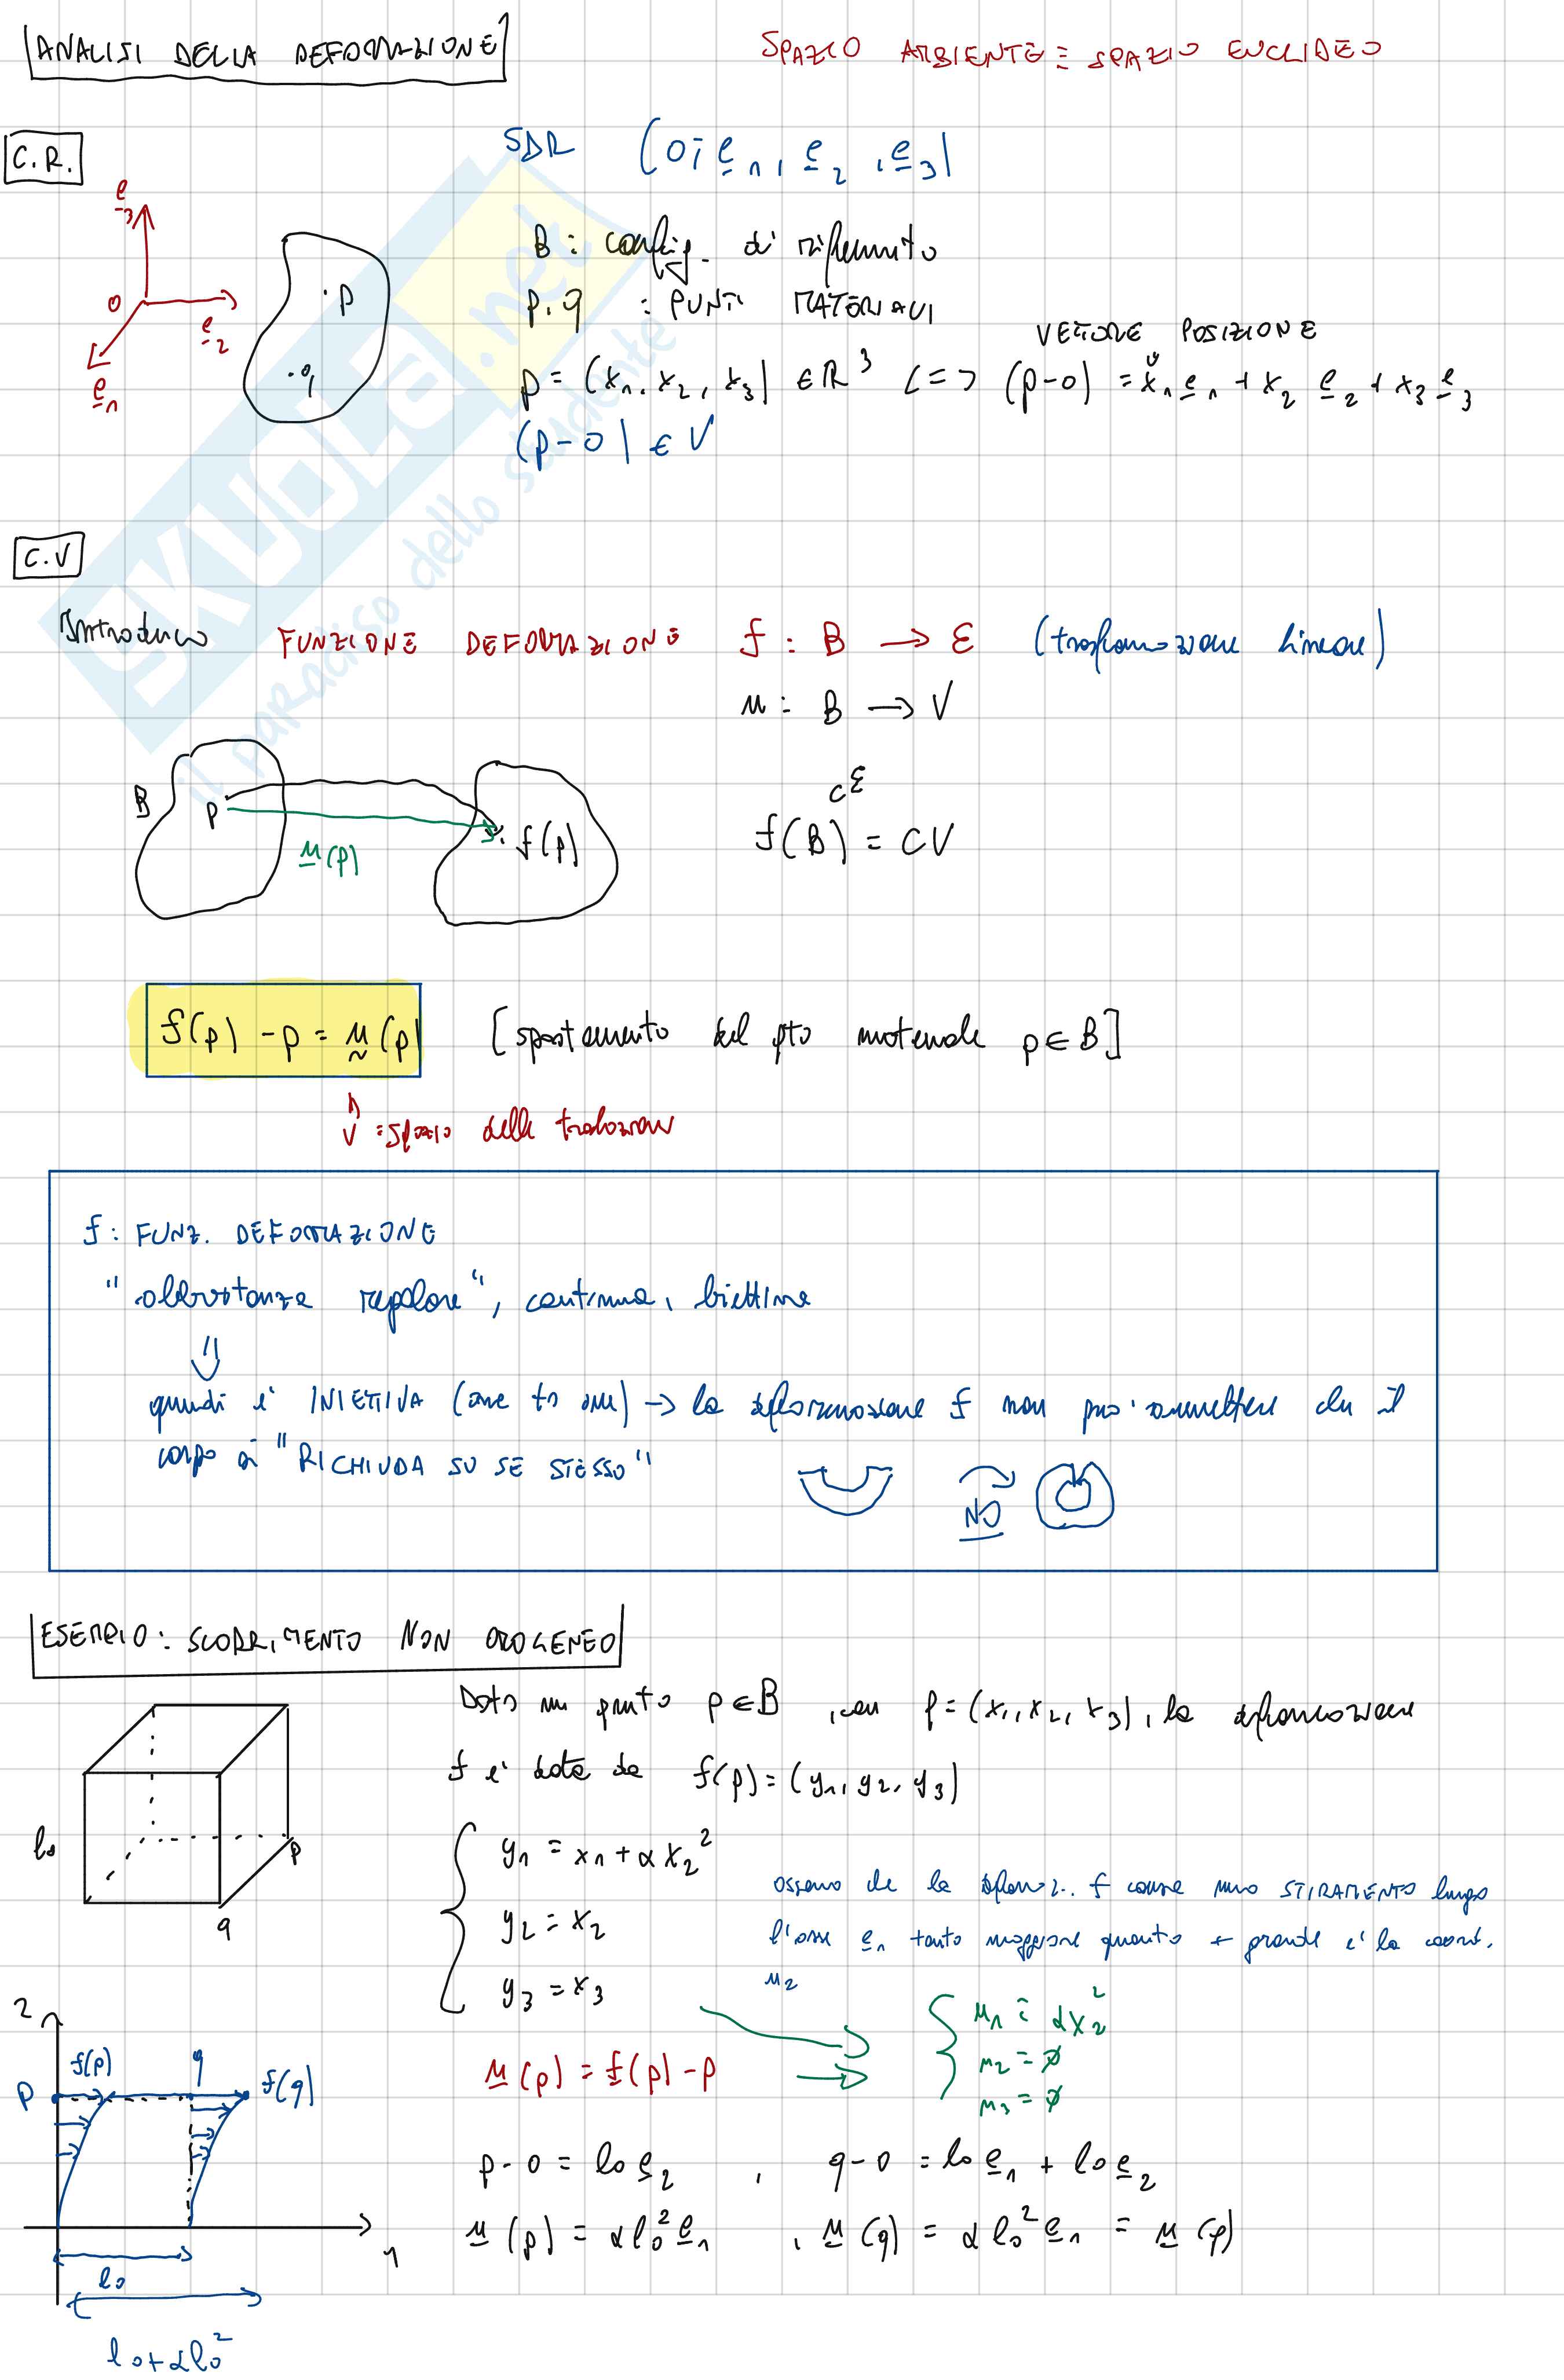 ANALISI DELLA DEFORMAZIONE
SPAZIO AMBIENTE ≡ SPAZIO EUCLIDEO
C.R.
SDR (0; e1, e2, e3)
e3
0
e2
e1
p
q
B : config. di riferimento
p, q : PUNTI MATERIALI
VETTORE POSIZIONE
p = (x1, x2, x3) ∈ R³ <=> (p-0) = x1 e1 + x2 e2 + x3 e3
(p-0) ∈ V
C.V
Introduco FUNZIONE DEFORMAZIONE f : B → ℰ (trasformazione lineare)
u : B → V
B
p
u(p)
f(p)
⊂ ℰ
f(B) = CV
f(p) - p = u(p) [spostamento del pto materiale p ∈ B]
V = spazio delle traslazioni
f : FUNZ. DEFORMAZIONE
"abbastanza regolare", continua, biettiva
⇓
quindi è INIETTIVA (one to one) → la deformazione f non può ammettere che il
corpo si "RICHIUDA SU SE STESSO"
NO
ESEMPIO: SCORRIMENTO NON OMOGENEO
l0
p
q
Dato un punto p ∈ B, con p = (x1, x2, x3), la deformazione
f è data da f(p) = (y1, y2, y3)
y1 = x1 + α x2²
y2 = x2
y3 = x3
osservo che la deformaz. f causa uno STIRAMENTO lungo
l'asse e1 tanto maggiore quanto + grande è la coord.
u2
u(p) = f(p) - p
u1 = α x2²
u2 = ∅
u3 = ∅
p-0 = l0 e2 , q-0 = l0 e1 + l0 e2
u(p) = α l0² e1 , u(q) = α l0² e1 = u(p)
2
f(p)
q
f(q)
p
1
l0
l0 + α l0²
SKUOLA.net
il paradiso dello studente